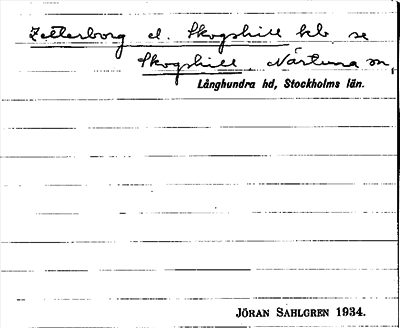 Zetterborg el. Skogshill hb se
Skogshill, Närtuna sn,
Långhundra hd, Stockholms län.
JÖRAN SAHLGREN 1934.